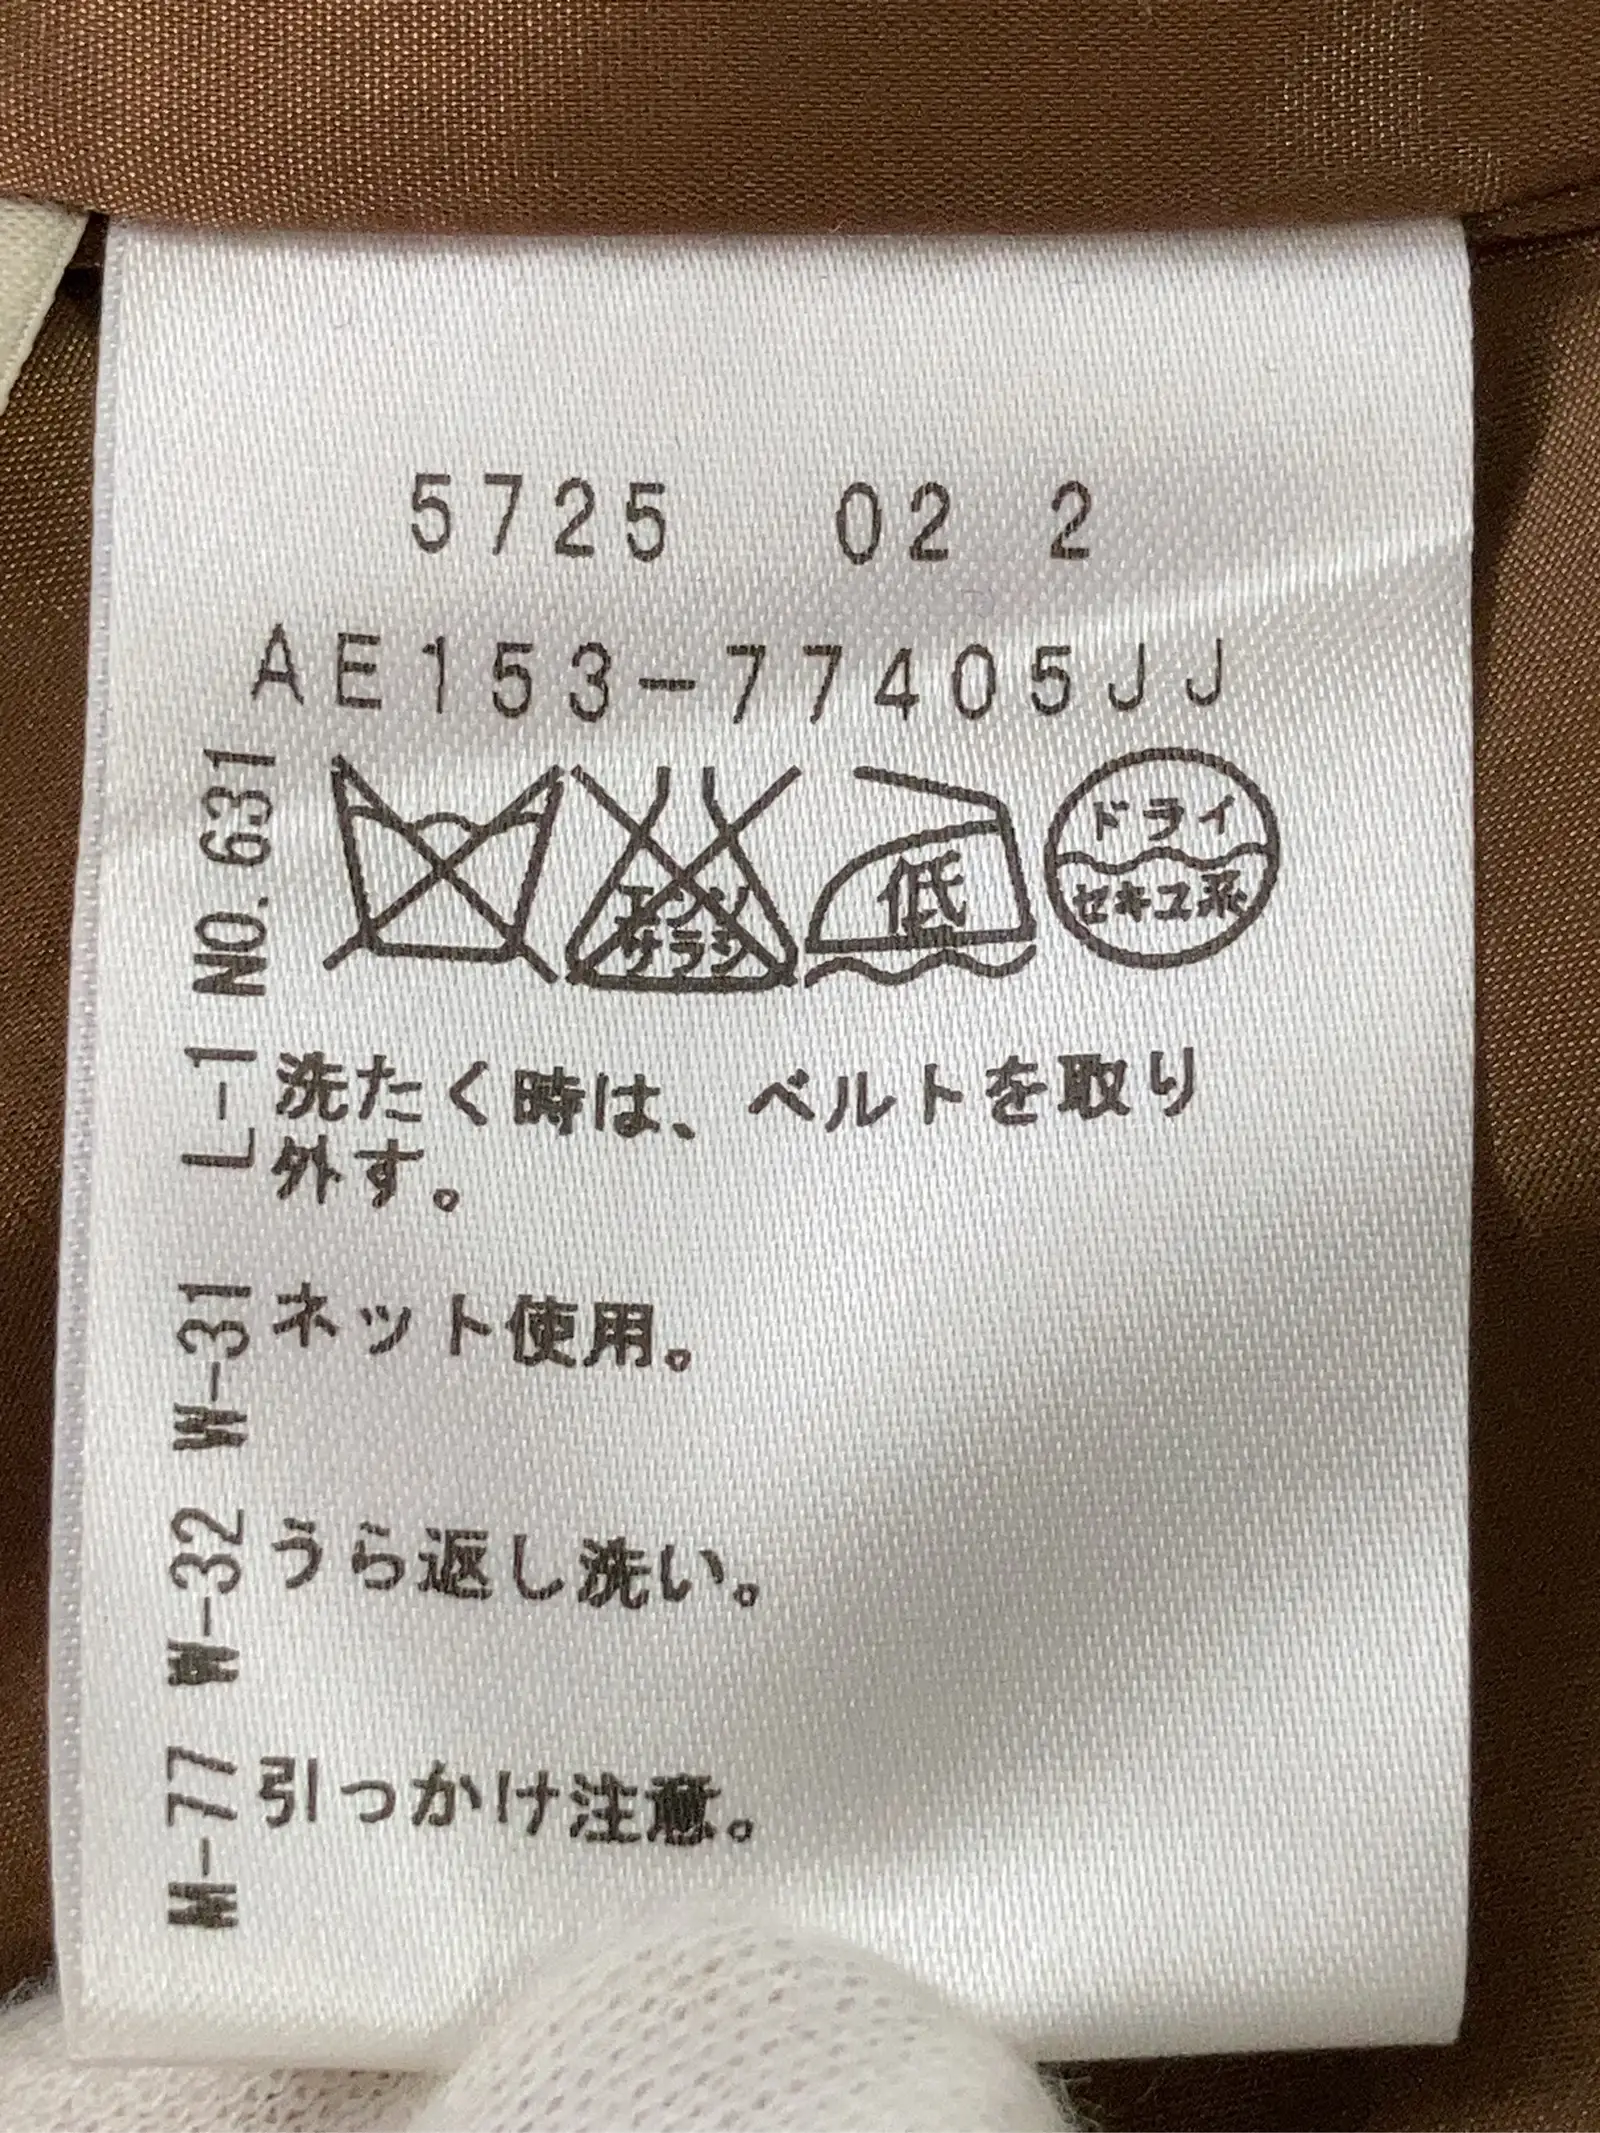 5725 02 2
AE153-77405JJ
NO.631
エンソ
サラシ
低
ドライ
セキユ系
L-1 洗たく時は、ベルトを取り
外す。
W-31 ネット使用。
W-32 うら返し洗い。
M-77 引っかけ注意。